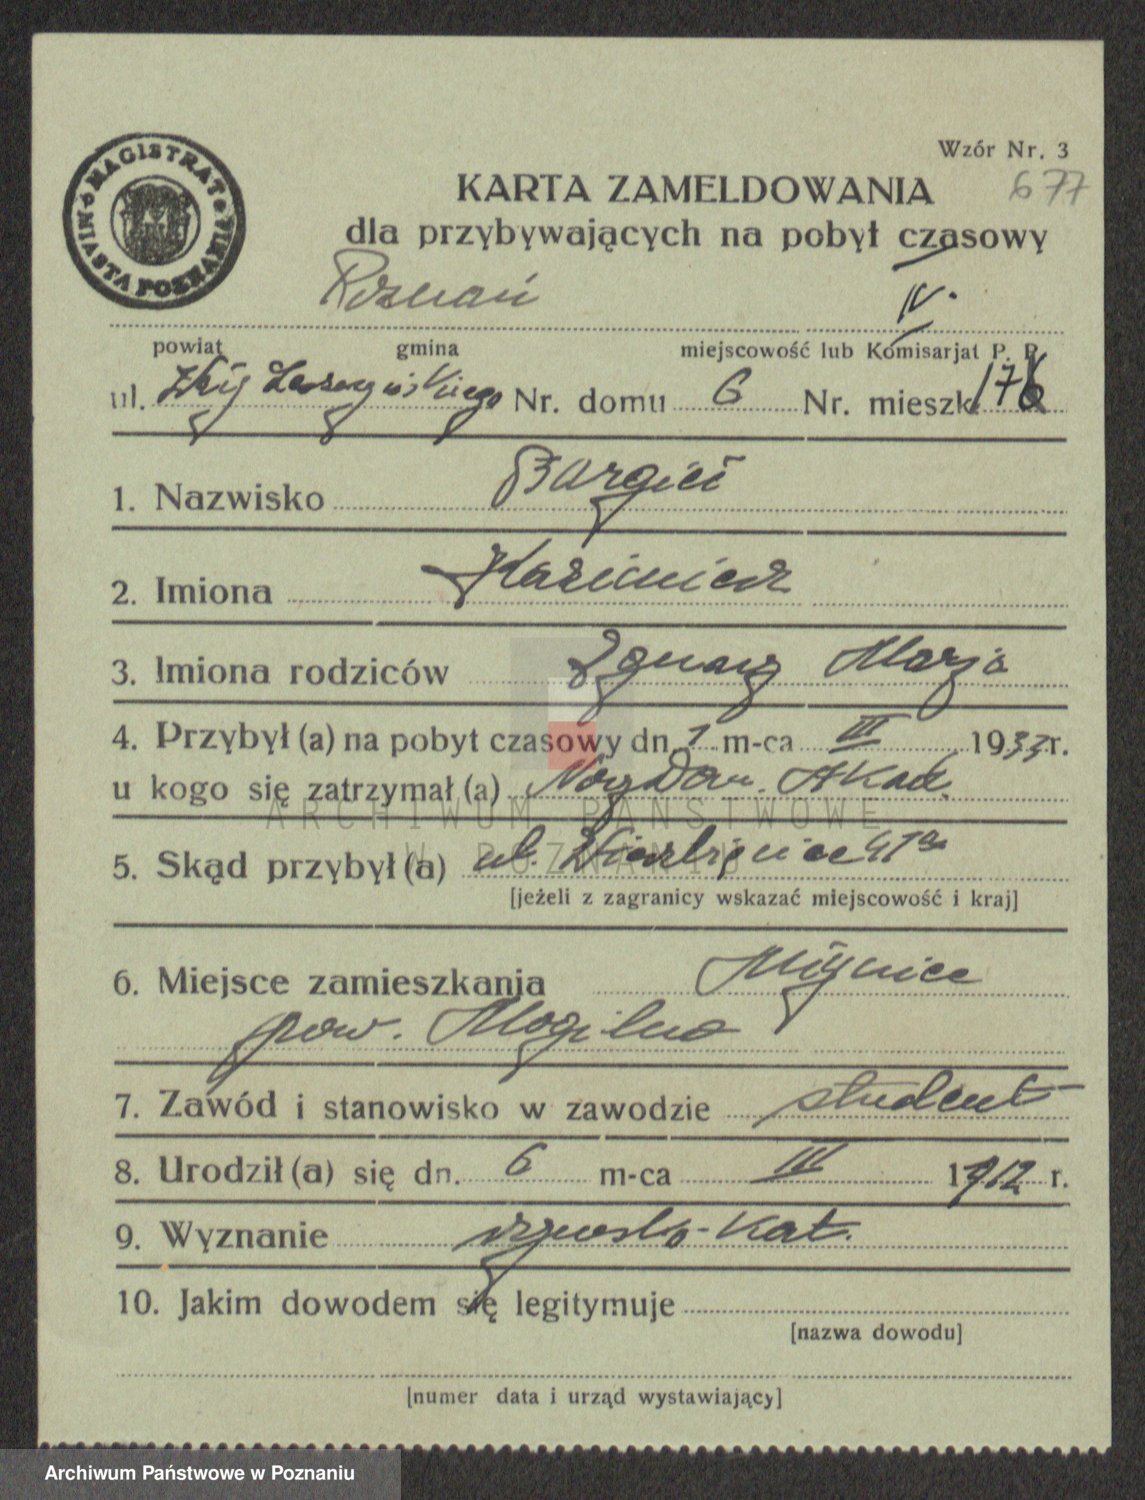 MAGISTRAT MIASTA POZNANIA
Wzór Nr. 3
KARTA ZAMELDOWANIA
677
dla przybywających na pobyt czasowy
Poznań IV.
powiat gmina miejscowość lub Komisarjat P. P.
ul. Leszczyńskiego Nr. domu 6 Nr. mieszk. 176
1. Nazwisko Bargieł
2. Imiona Kazimierz
3. Imiona rodziców Ignacy Marja
4. Przybył (a) na pobyt czasowy dn. 1 m-ca III 1933 r.
u kogo się zatrzymał (a) Dom. Akad.
ARCHIWUM PAŃSTWOWE
W POZNANIU
5. Skąd przybył (a) ul. Wierzbięcice
[jeżeli z zagranicy wskazać miejscowość i kraj]
6. Miejsce zamieszkania
pow. Mogilno
7. Zawód i stanowisko w zawodzie student
8. Urodził (a) się dn. 6 m-ca III 1912 r.
9. Wyznanie rzymsko-kat.
10. Jakim dowodem się legitymuje
[nazwa dowodu]
[numer data i urząd wystawiający]
Archiwum Państwowe w Poznaniu